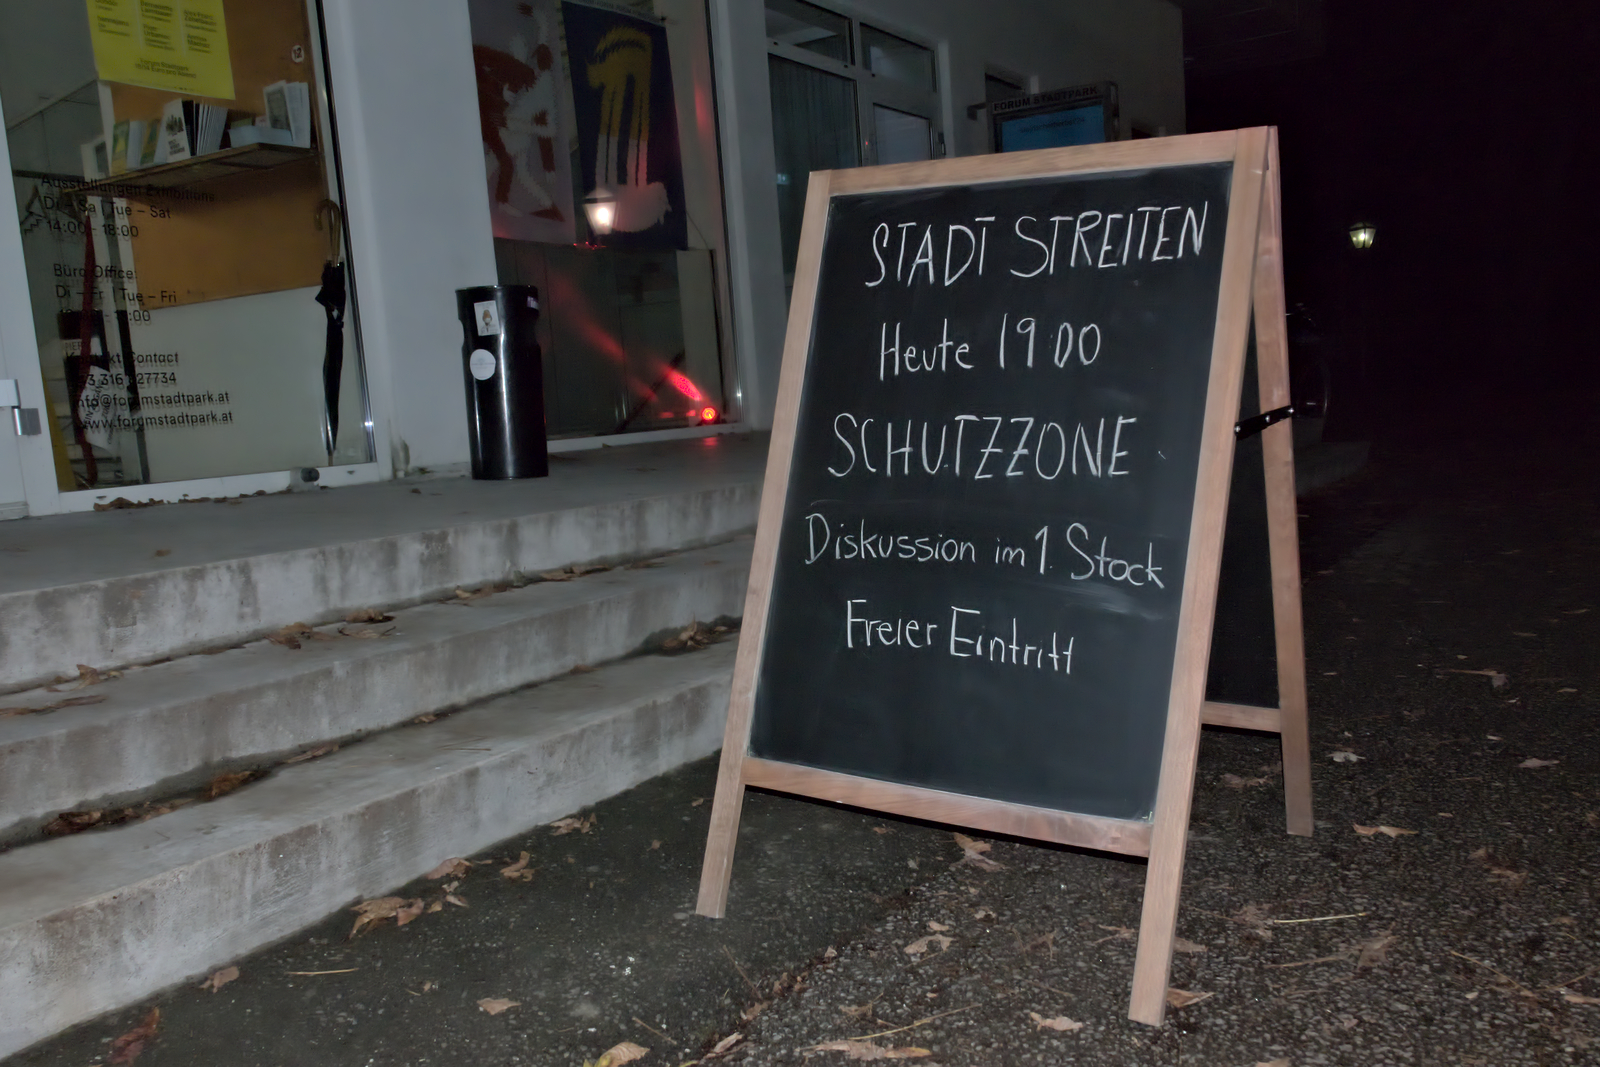 Ausstellungen Exhibitions
Di – Sa | Tue – Sat
14:00 - 18:00
Büro Office:
Di – Fr | Tue – Fri
Kontakt Contact
info@forumstadtpark.at
www.forumstadtpark.at
FORUM STADTPARK
STADT STREITEN
Heute 19:00
SCHUTZZONE
Diskussion im 1. Stock
Freier Eintritt